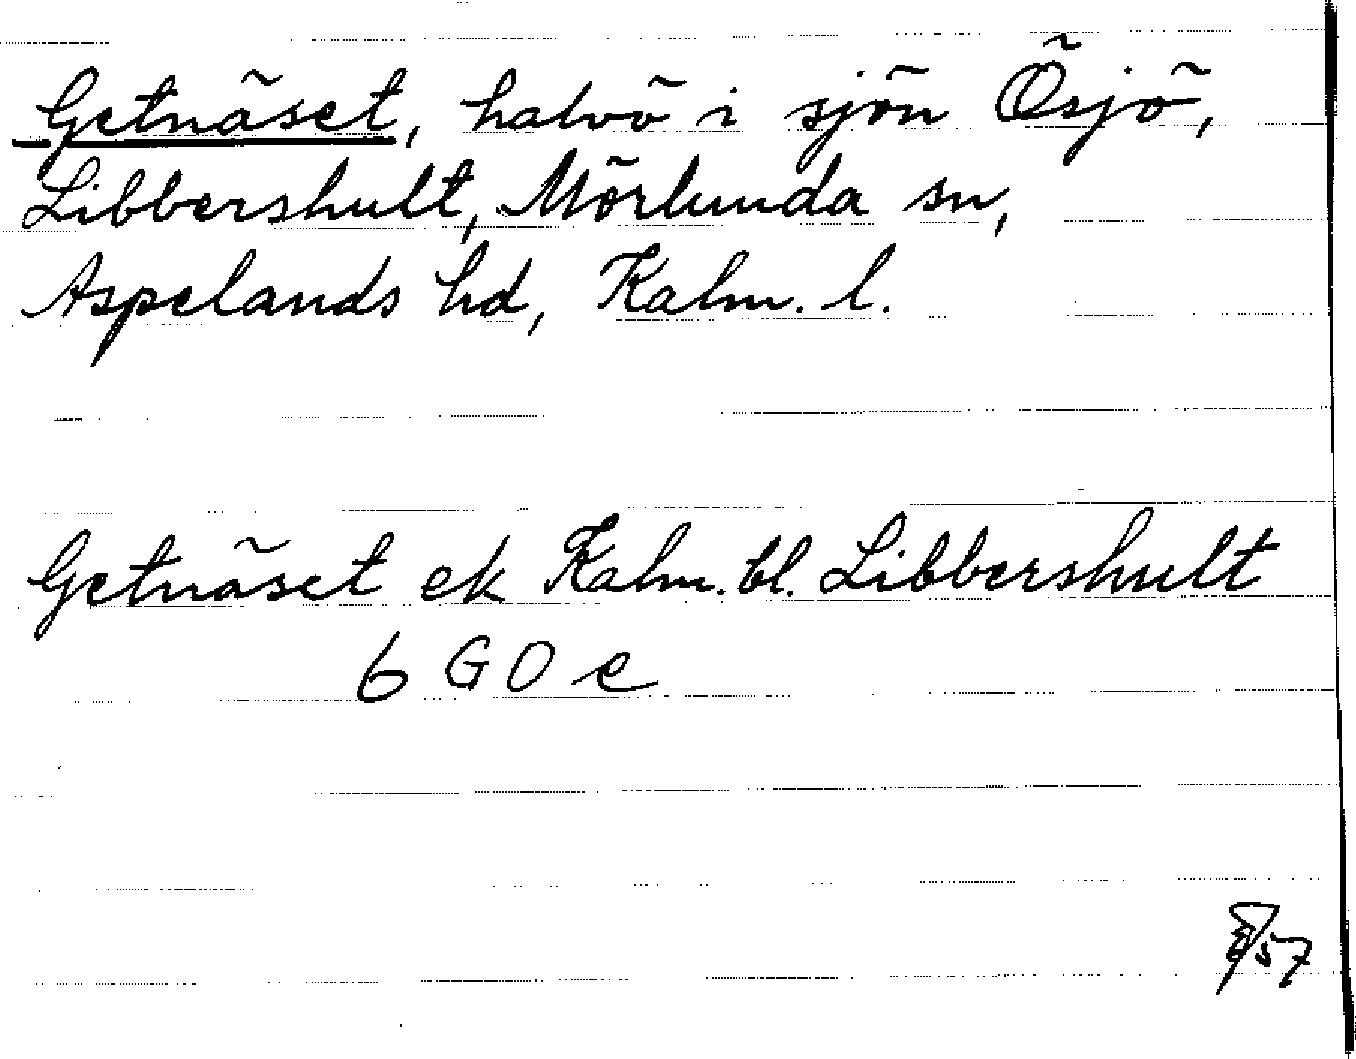 Getnäset, halvö i sjön Ösjö,
Libbershult, Mörlunda sn,
Aspelands hd, Kalm. l.
Getnäset ek Kalm. bl. Libbershult
6 G O e
57